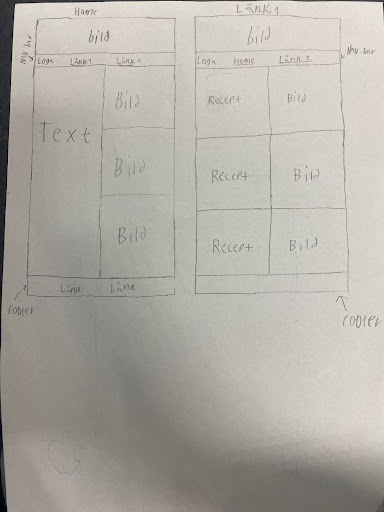 Home
bild
Nav-bar
Loga Länk1 Länk2
Text
Bild
Bild
Bild
Länk Länk
Footer
Länk1
bild
Nav-bar
Loga Home Länk2
Recept Bild
Recept Bild
Recept Bild
footer